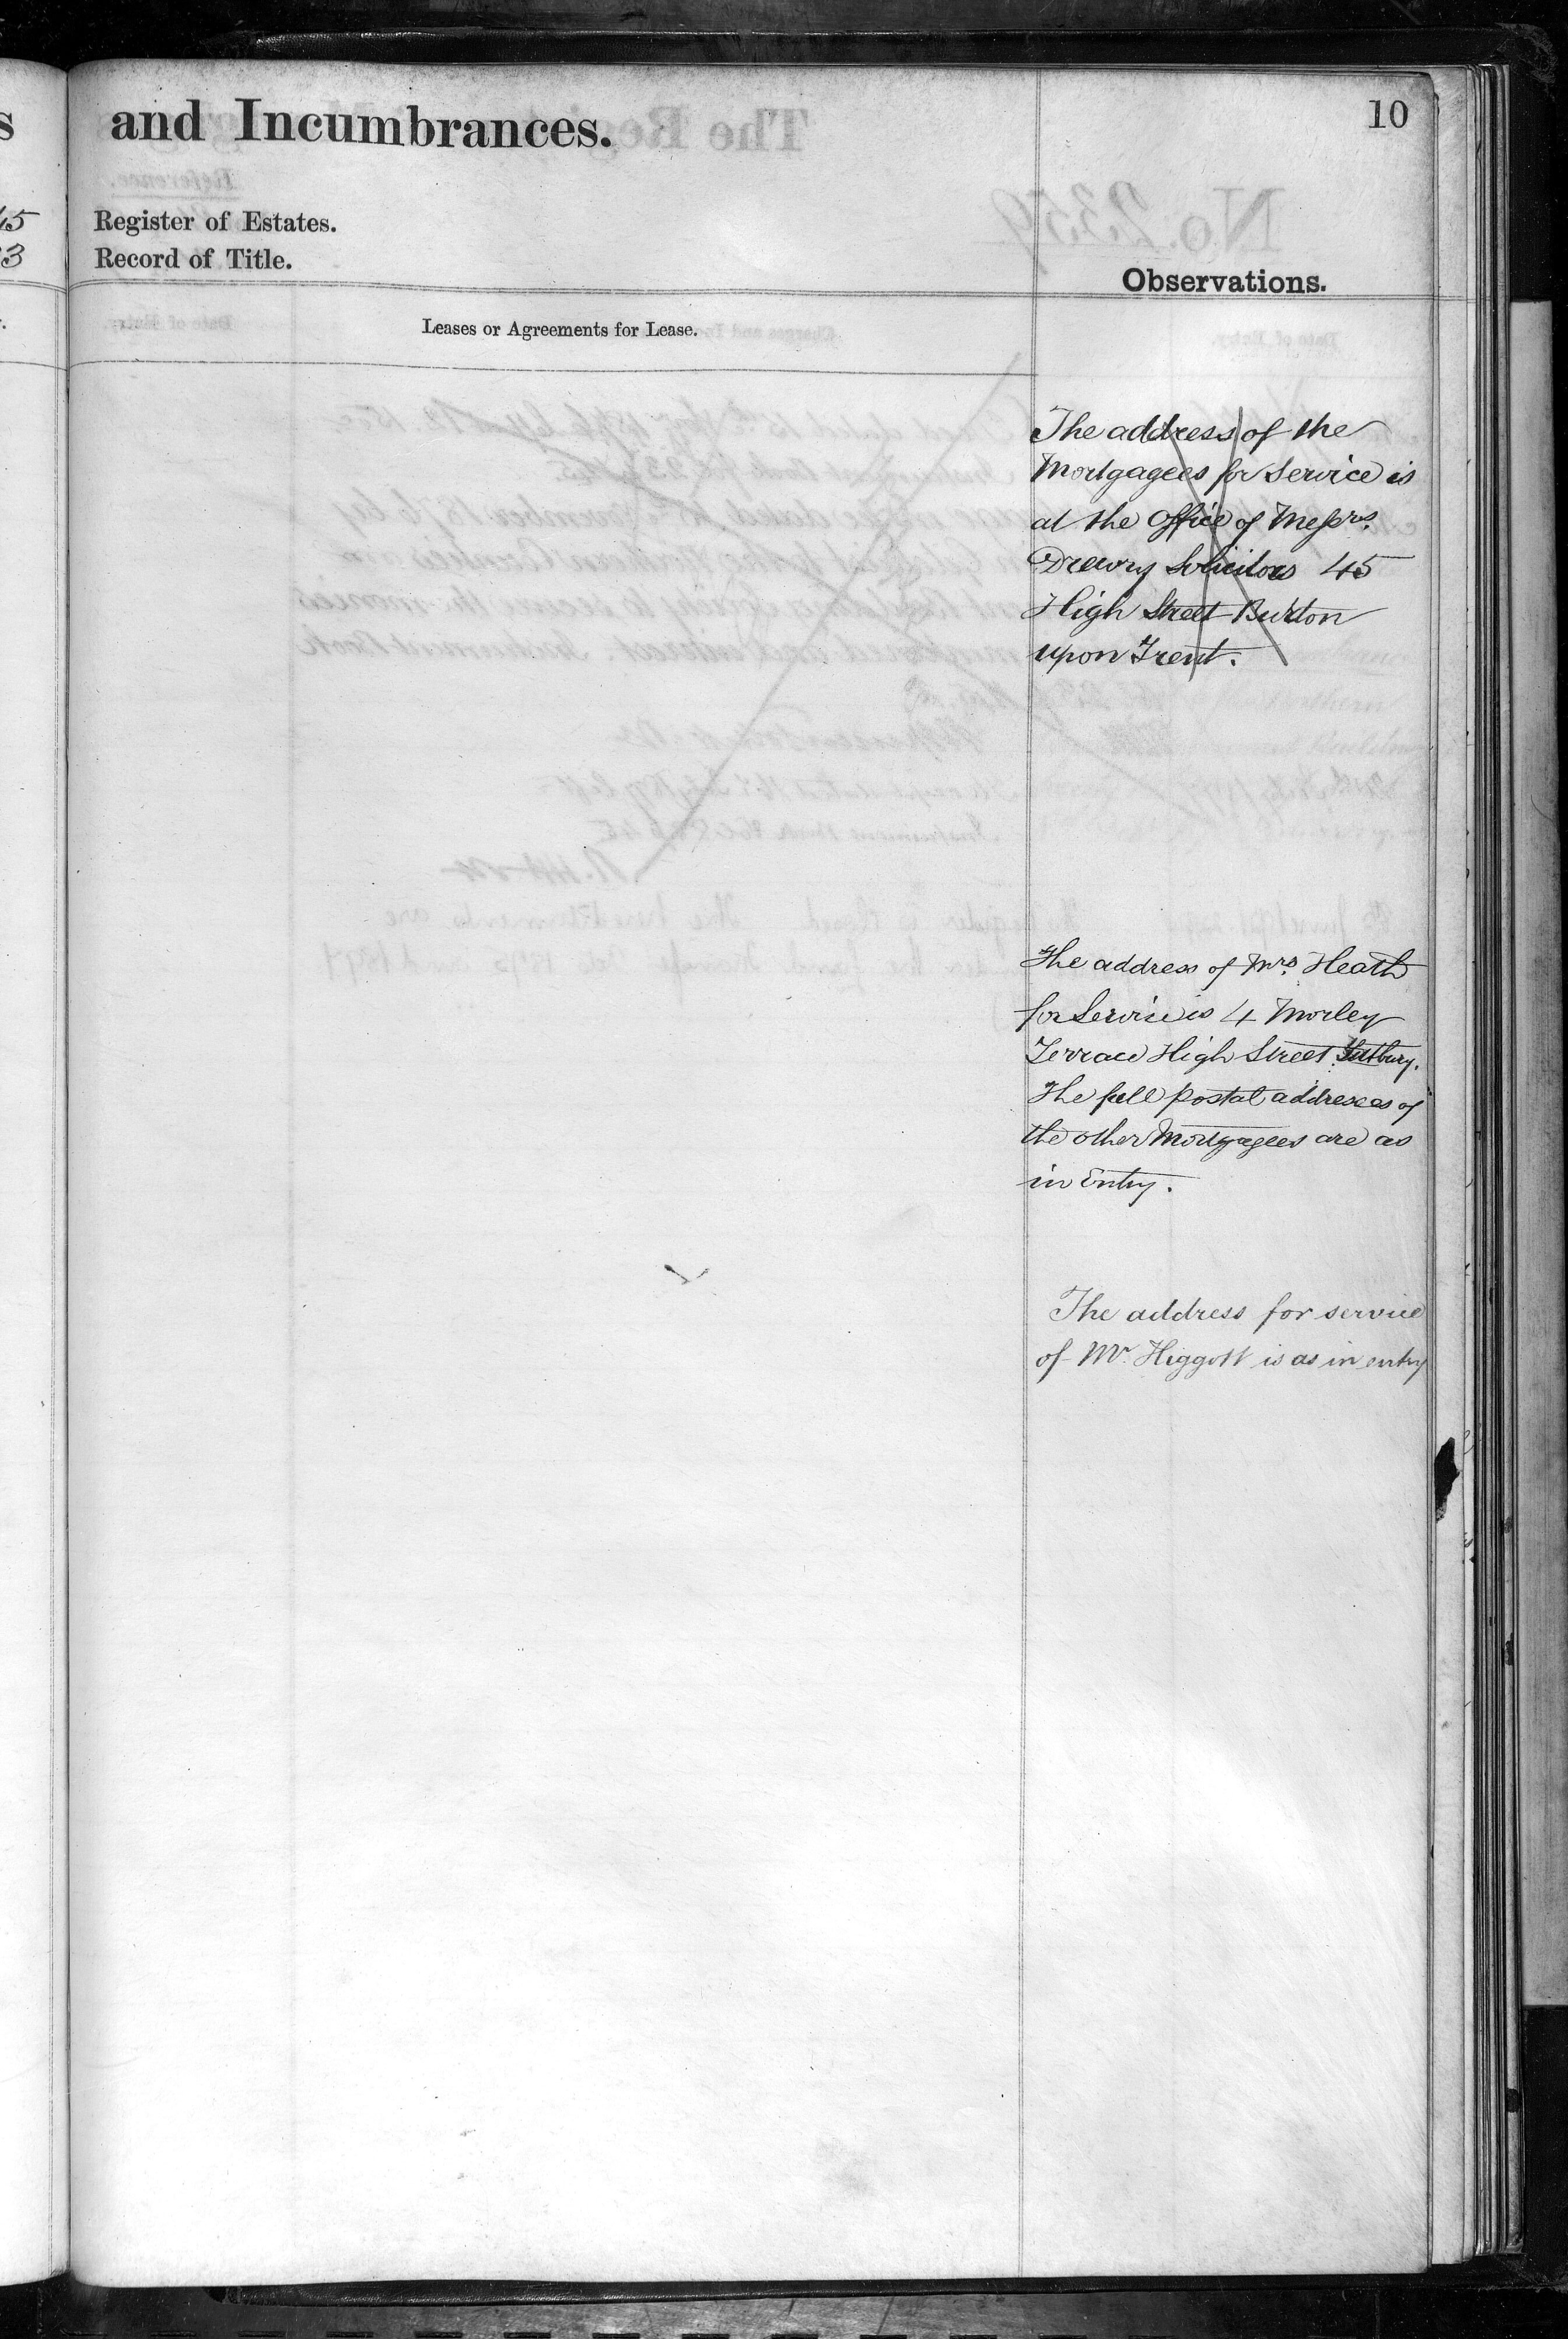 and Incumbrances.
10
Register of Estates.
Record of Title.
Observations.
Leases or Agreements for Lease.
The address of the
Mortgagees for Service is
at the Office of Messrs.
Drewry Solicitors 45
High Street Burton
upon Trent.
The address of Mrs. Heath
for Service is 4 Morley
Terrace High Street Tutbury.
The full postal addresses of
the other Mortgagees are as
in Entry.
The address for service
of Mr. Higgott is as in entry